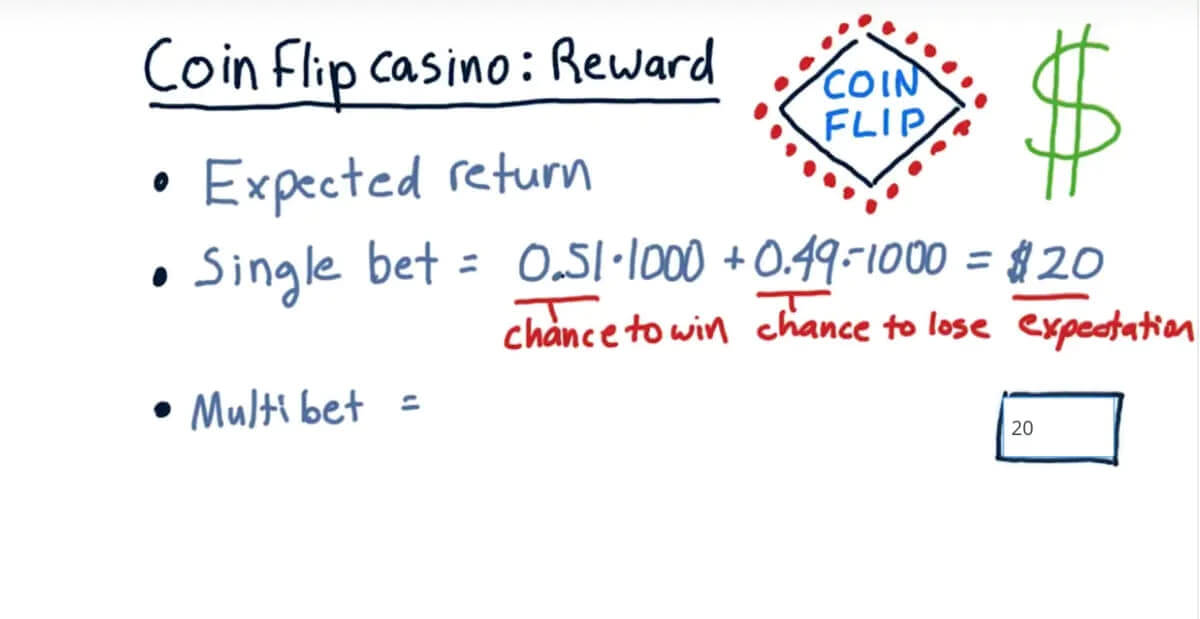 Coin Flip casino: Reward
COIN
FLIP
$
• Expected return
• Single bet = 0.51·1000 + 0.49·-1000 = $20
chance to win chance to lose expectation
• Multi bet =
20